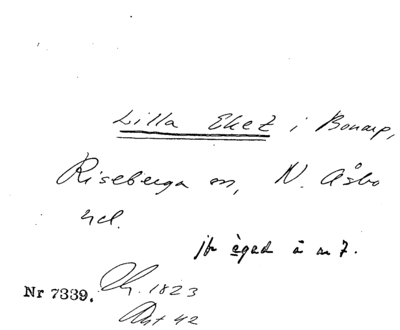 Lilla Eket i Bonarp,
Riseberga sn, N. Åsbo
hd.
jfr èged å nr 7.
Nr 7339. Ch. 1823
Ant 42